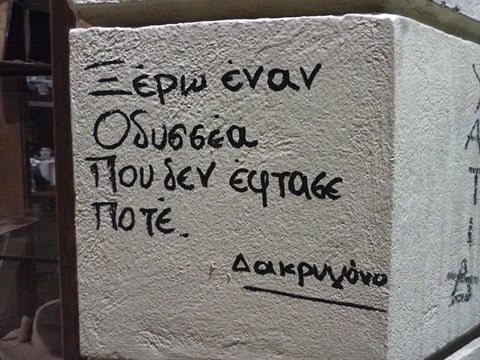 Ξέρω έναν
Οδυσσέα
Που δεν έφτασε
Ποτέ.
Δακρυγόνο